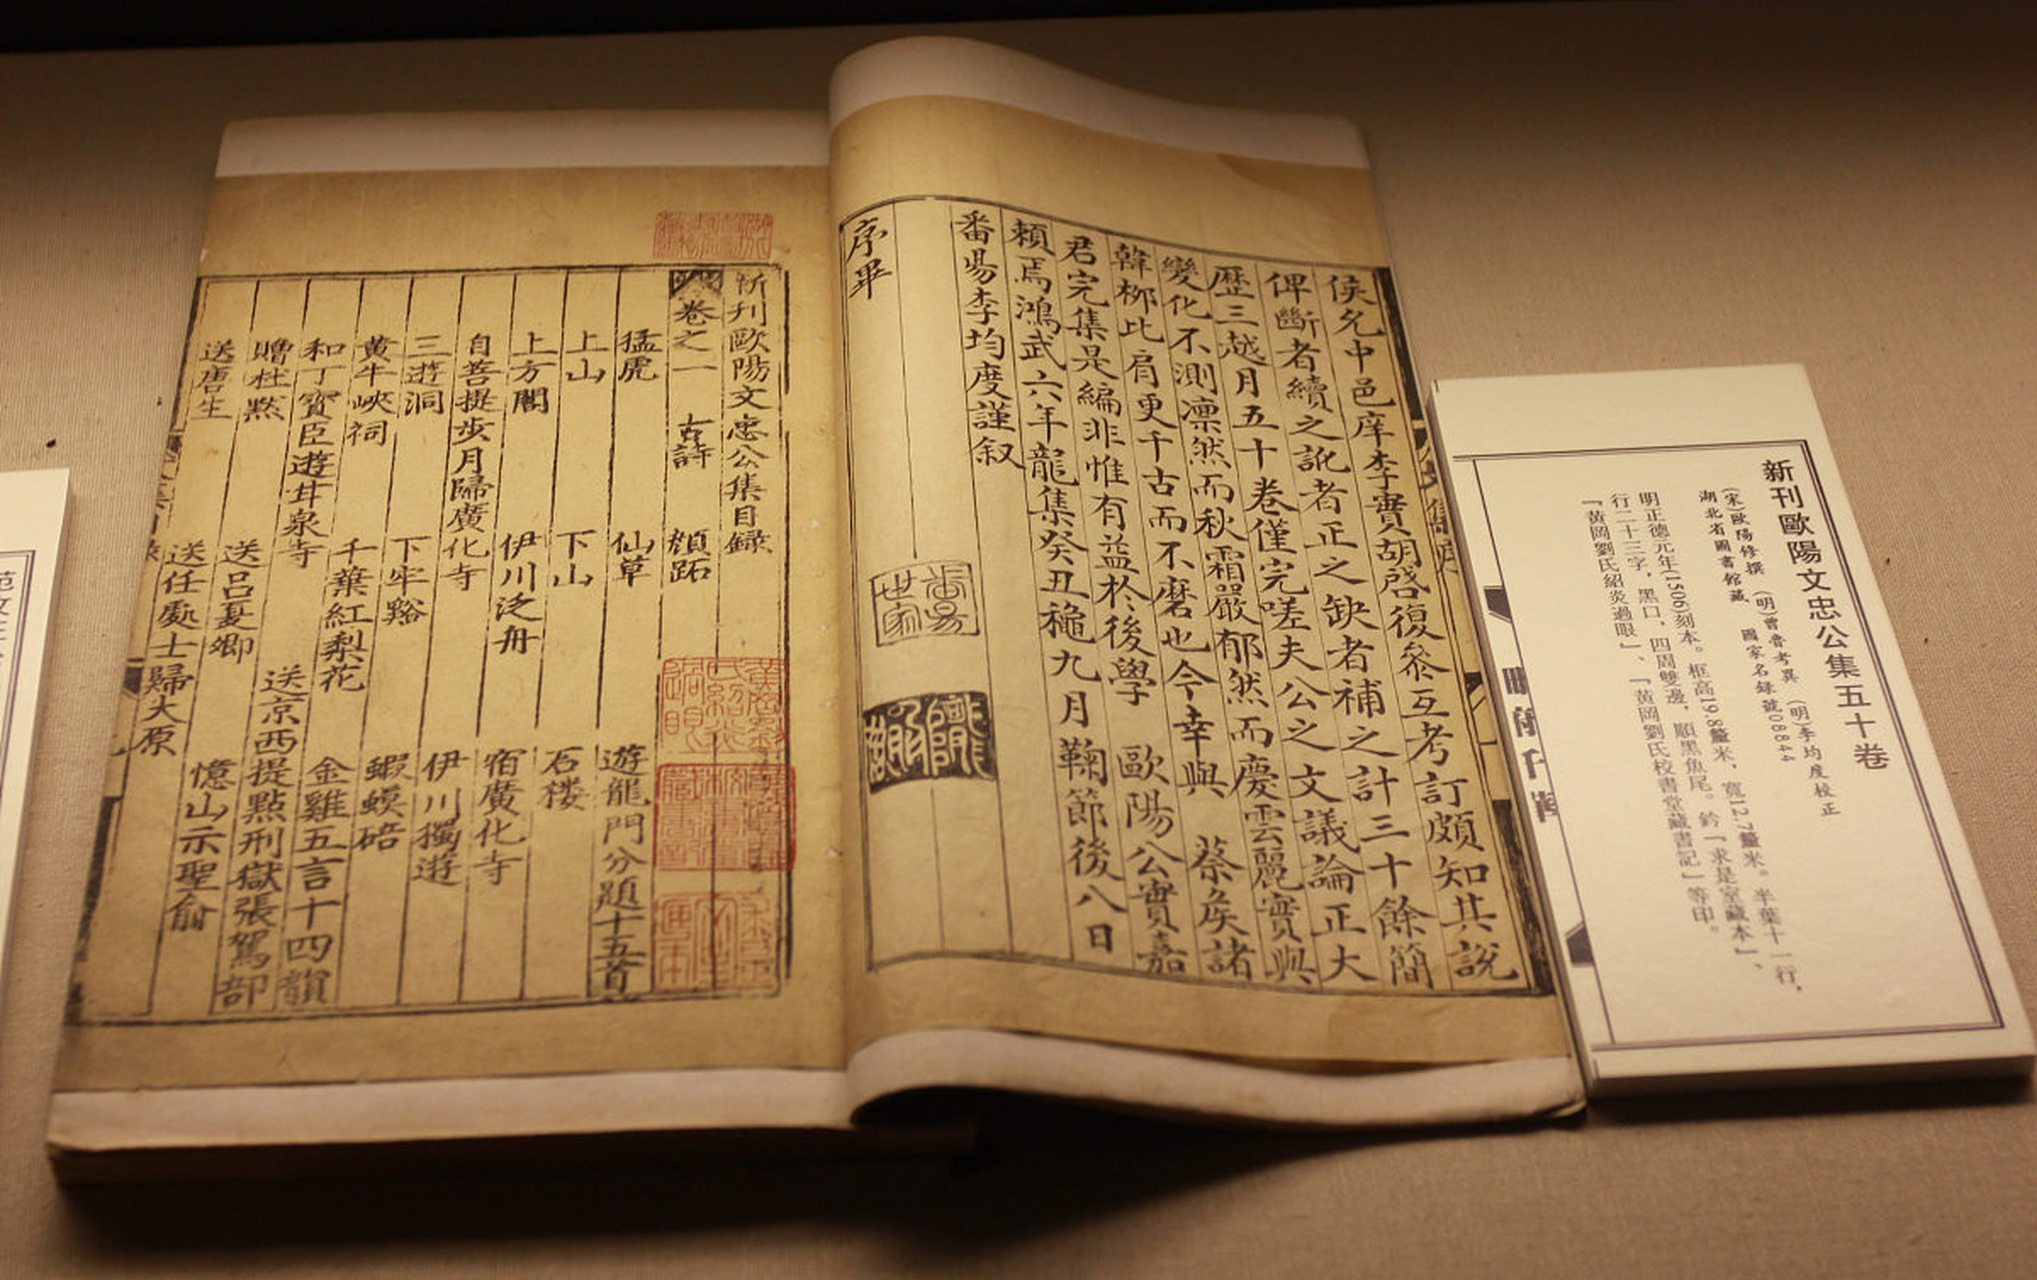 新刊歐陽文忠公集五十卷
(宋)歐陽修撰 (明)曾魯考異 (明)李均度校正
湖北省圖書館藏 國家名錄號08844
明正德元年(1506)刻本。框高19.8釐米，寬12.7釐米。半葉十一行，
行二十三字，黑口，四周雙邊，順黑魚尾。鈐「求是室藏本」、
「黃岡劉氏紹炎過眼」、「黃岡劉氏校書堂藏書記」等印。
侯允中邑庠李實胡啓復參互考訂頗知其說
俾斷者續之訛者正之缺者補之計三十餘簡
歷三越月五十卷僅完嗟夫公之文議論正大
變化不測凛然而秋霜嚴郁然而慶雲麗實與
韓柳比肩更千古而不磨也今幸與 蔡矦諸
君完集是編非惟有益於後學 歐陽公實嘉
賴焉鴻武六年龍集癸丑龝九月鞠節後八日
番昜李均度謹叙
番昜世家
序畢
新刊歐陽文忠公集目錄
卷之一 古詩 顏跖
猛虎 仙草 遊龍門分題十五首
上山 下山 石楼
上方閣 伊川泛舟 宿廣化寺
自菩提步月歸廣化寺 伊川獨遊
三遊洞 下牢谿 蝦蟆碚
黃牛峽祠 千葉紅梨花 金雞五言十四韻
和丁寶臣遊甘泉寺 送京西提點刑獄張駕部
贈杜黙 送呂夏卿 憶山示聖俞
送唐生 送任處士歸大原